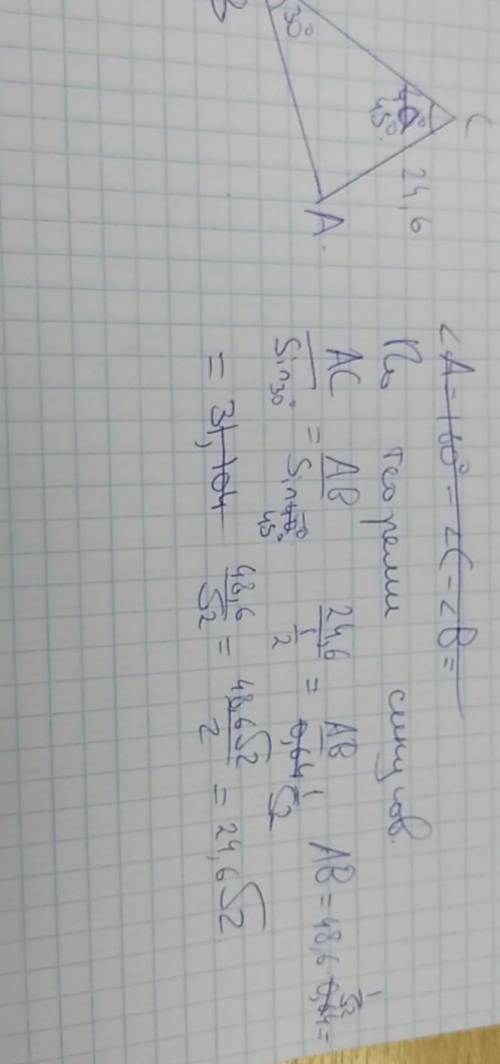 B
30°
45°
C
24,6
A
∠A = 180° - ∠C - ∠B =
По теореме синусов.
AC/Sin30° = AB/Sin45° 24,6/(1/2) = AB/(1/√2) AB = 48,6 1/√2 =
= 48,6/√2 = 48,6√2/2 = 24,6√2